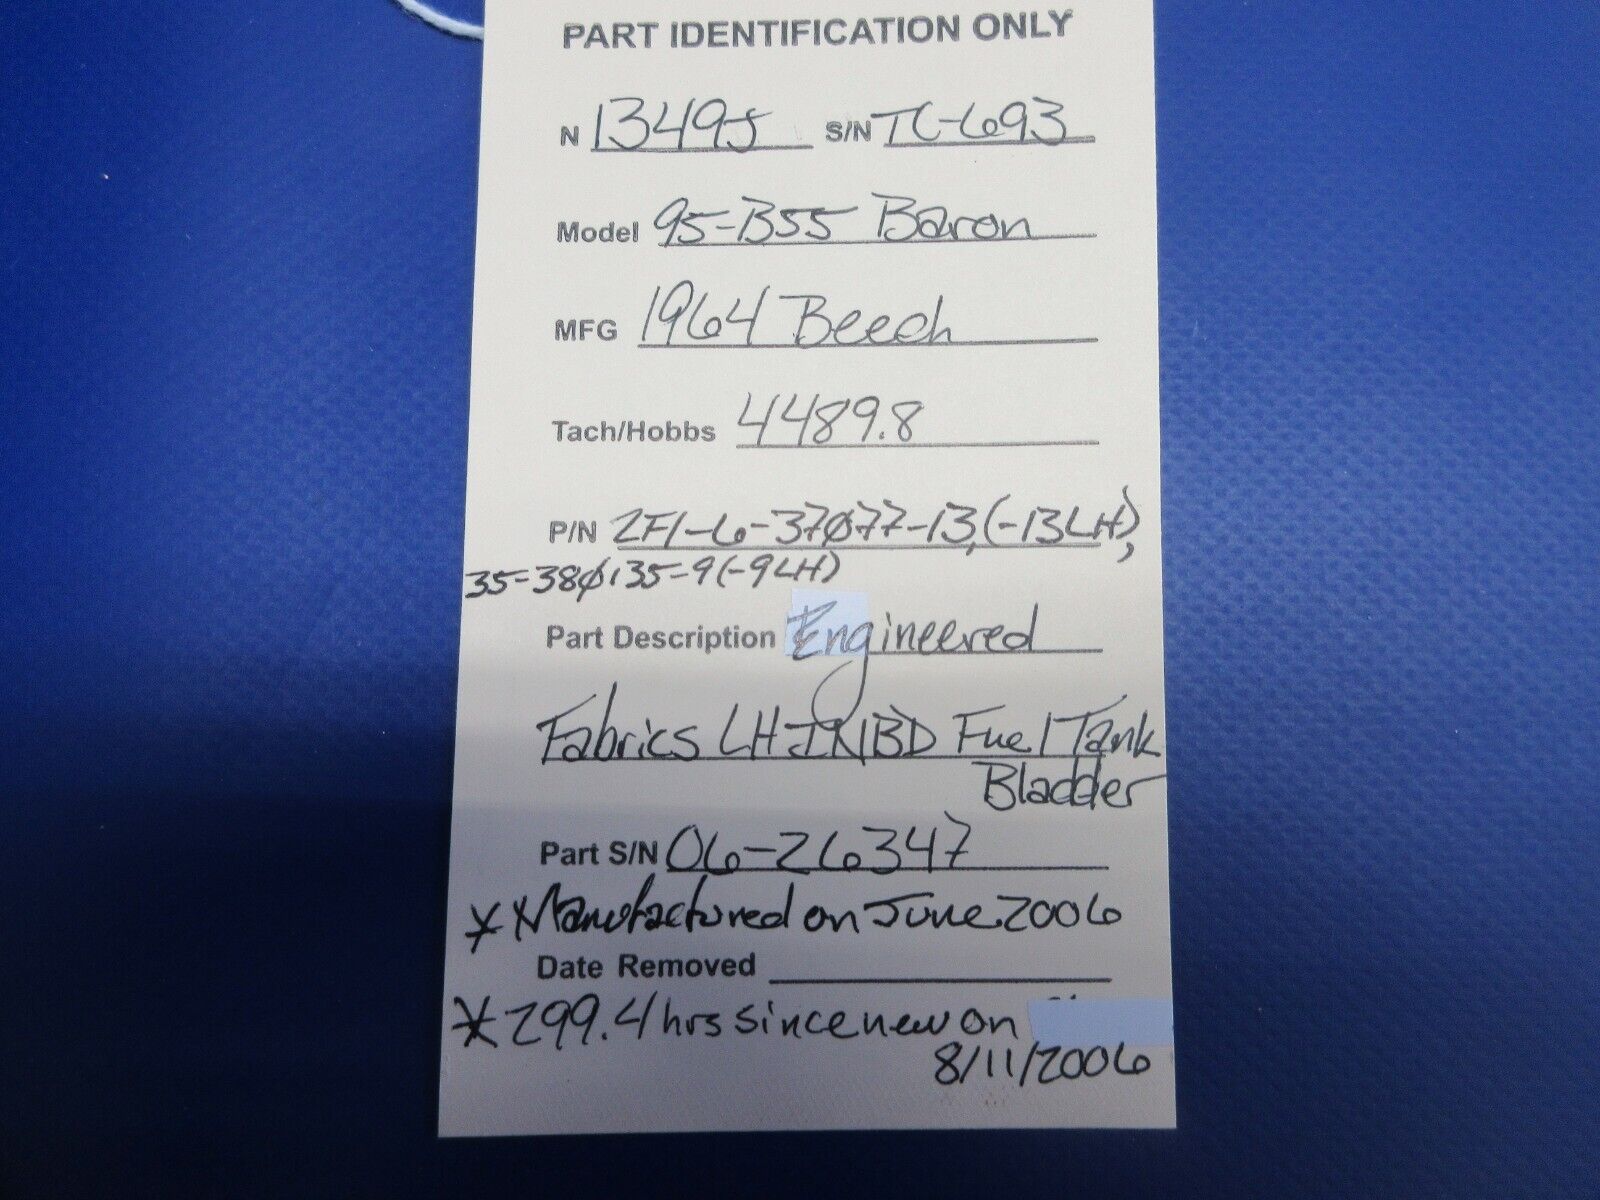 PART IDENTIFICATION ONLY
N 1349J S/N TC-693
Model 95-B55 Baron
MFG 1964 Beech
Tach/Hobbs 4489.8
P/N 2F1-6-37Ø77-13,(-13LH),
35-38Ø135-9(-9LH)
Part Description Engineered
Fabrics LH INBD Fuel Tank
Bladder
Part S/N 06-26347
* Manufactured on June 2006
Date Removed
* 299.4 hrs since new on
8/11/2006